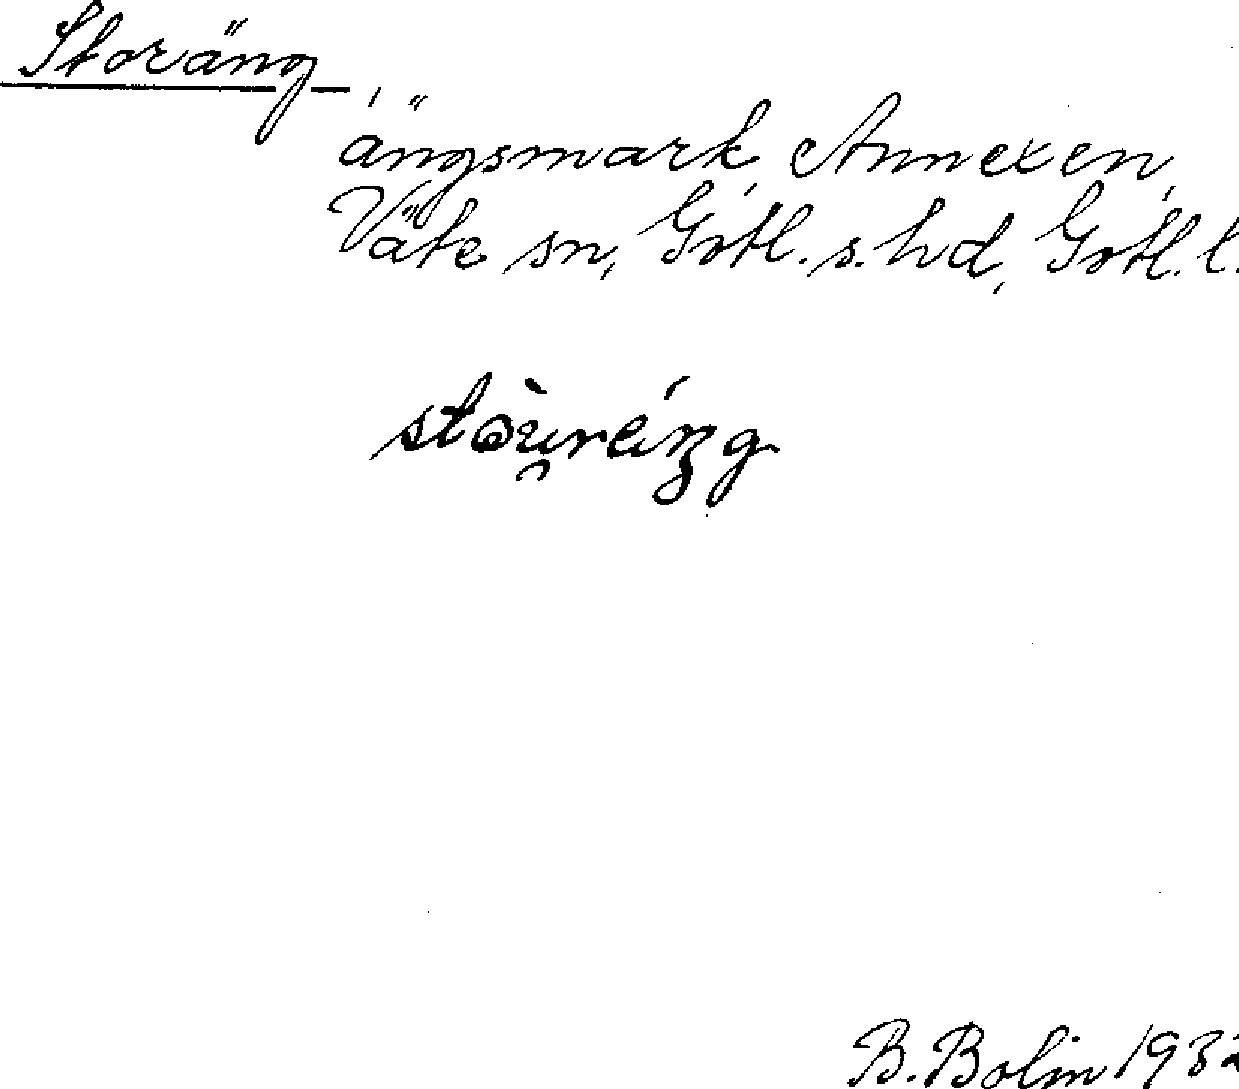 Storäng,
ängsmark, Annexen,
Väte sn, Gotl. s. hd, Gotl. l.
B. Bolin 1932